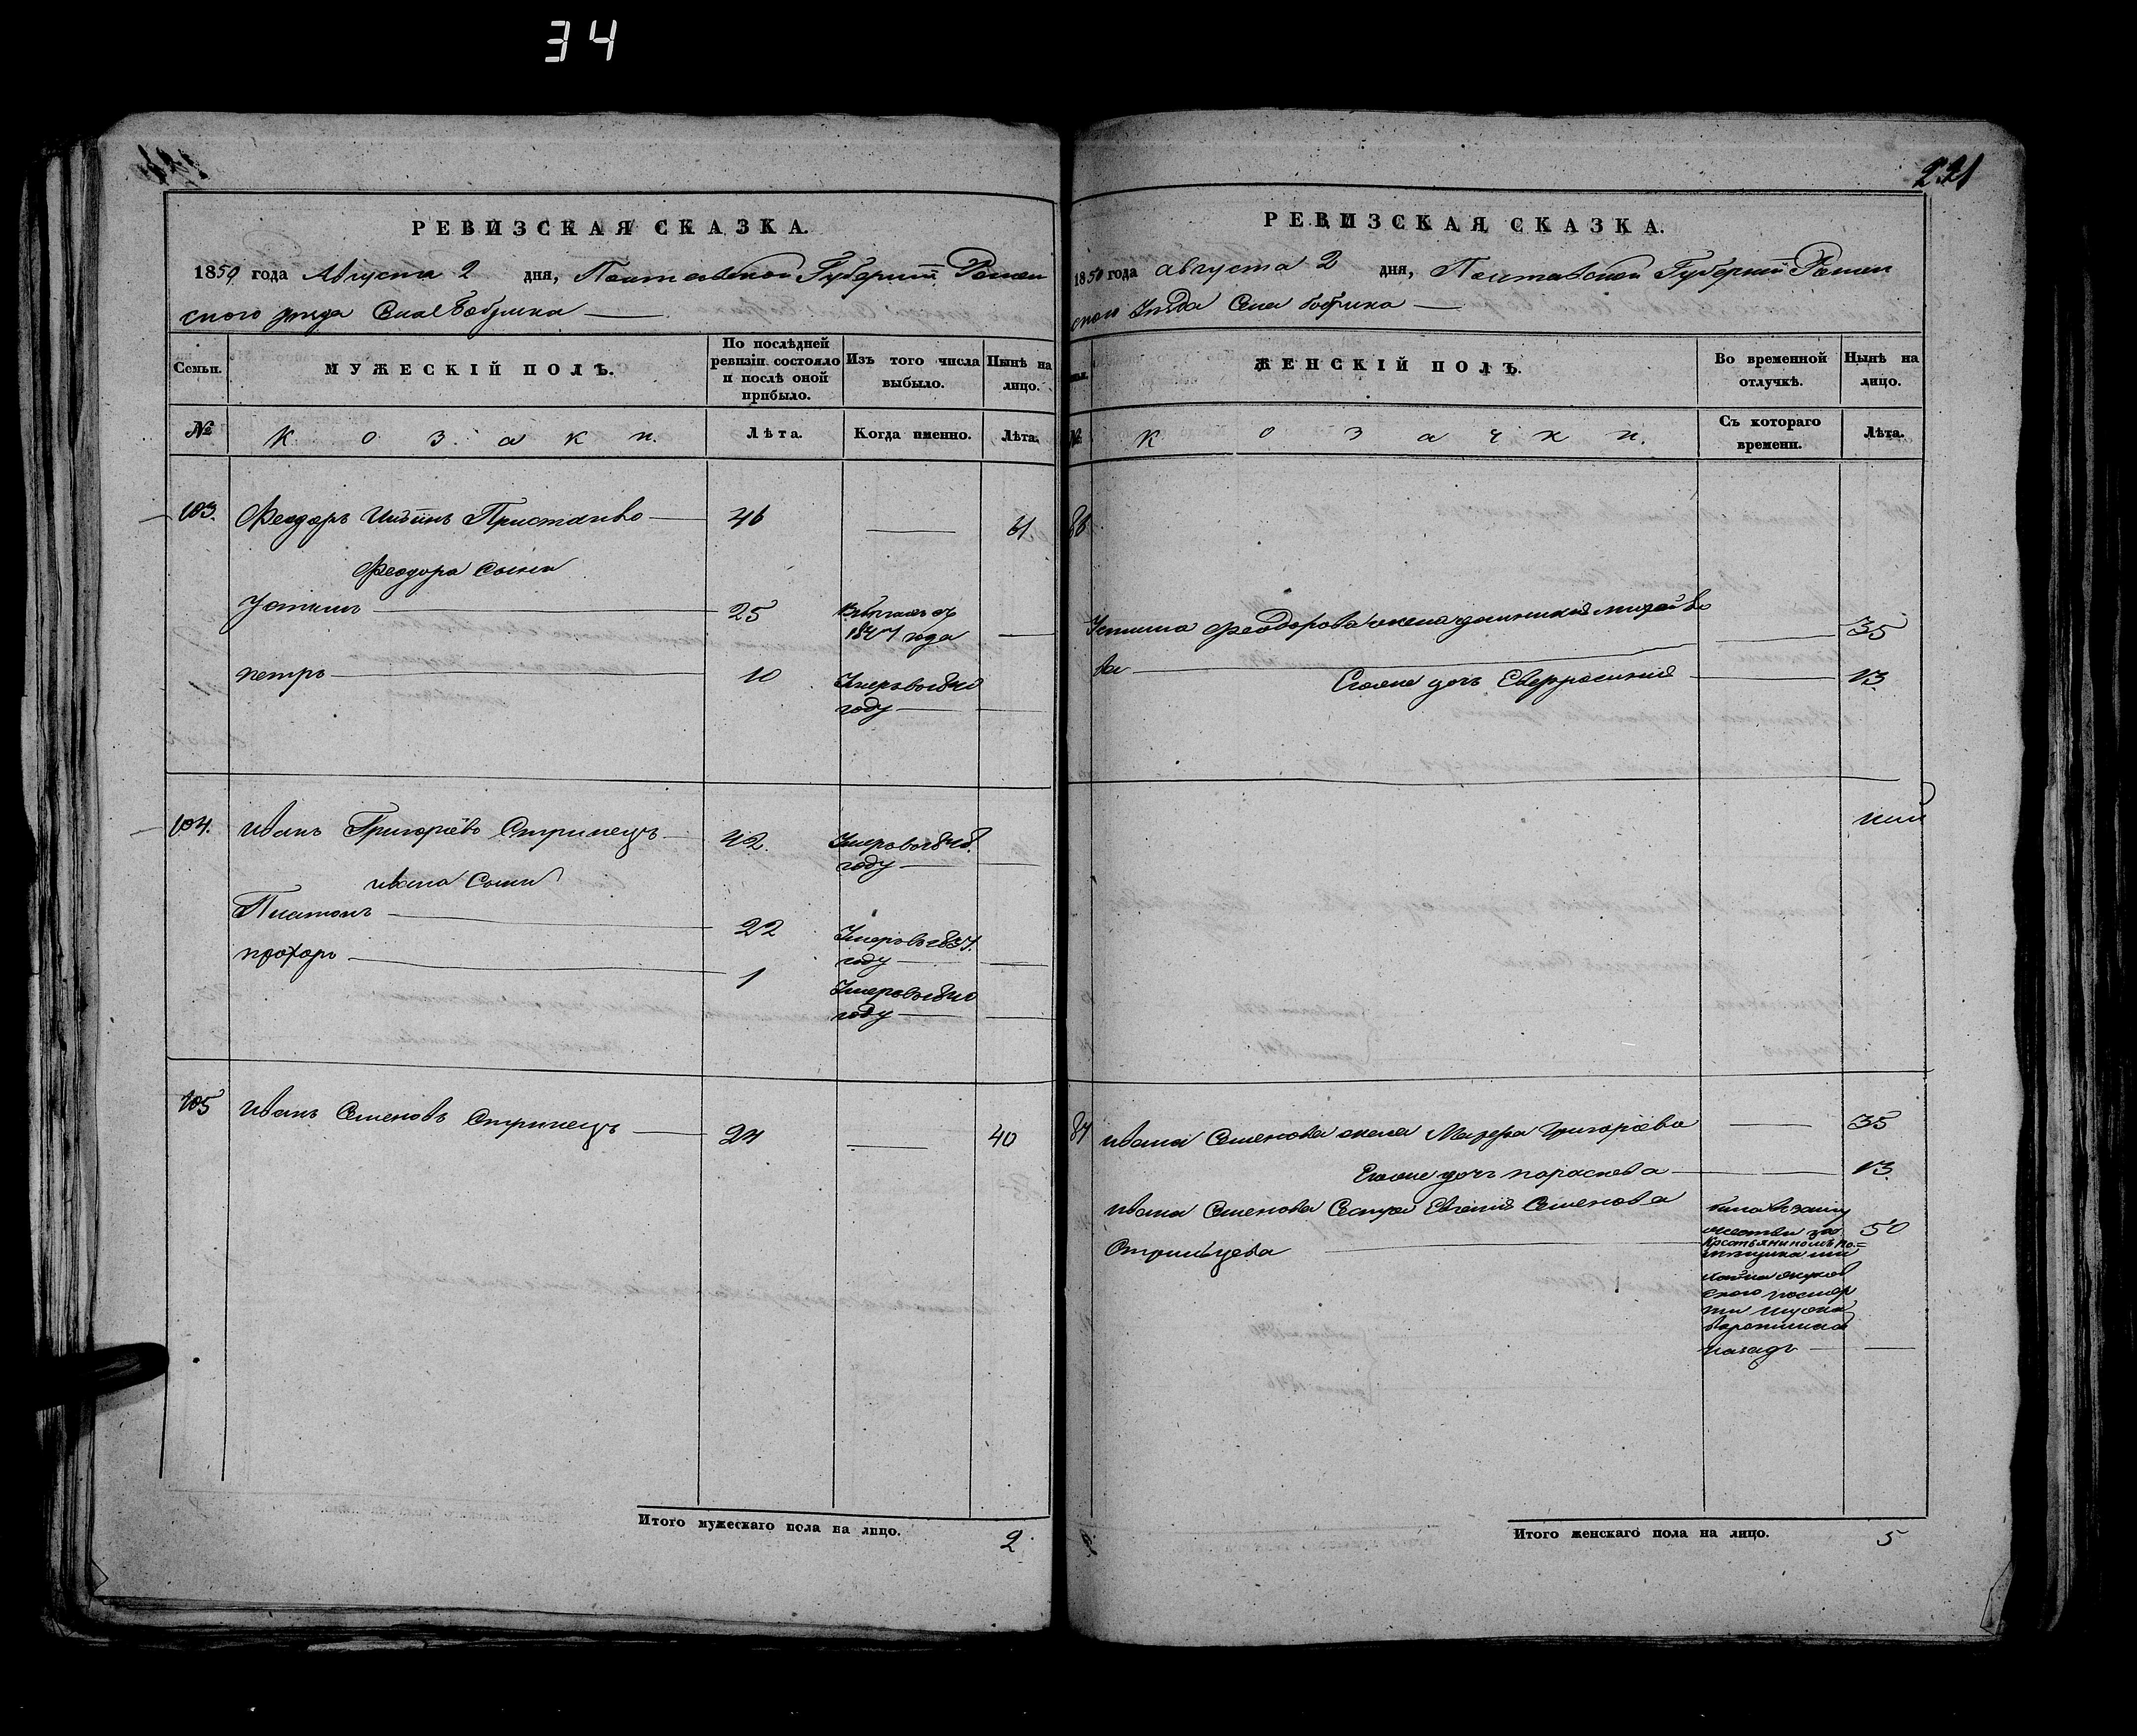 34
221
РЕВИЗСКАЯ СКАЗКА.
1850 года Августа 2 дня, Полтавской Губерніи Ромен
ского уезда Села Бобрика
Семьи.
МУЖЕСКІЙ ПОЛЪ.
По послѣдней
ревизіи состояло
и послѣ оной
прибыло.
Изъ того числа
выбыло.
Нынѣ на
лицо.
№
Козаки.
Лѣта.
Когда именно.
Лѣта.
103.
Феодоръ
46
61
Феодора Сыны
Устимъ
25
1847 года
петръ
10
Умеръ въ 1840
году
104.
иванъ Григоріевъ Стрилецъ
42.
Умеръ въ 1848.
году
ивана Сыны
Платонъ
22
Умеръ въ 1837.
году
прохоръ
1
Умеръ въ 1840
году
105
иванъ Семеновъ Стрилецъ
24
40
Итого мужескаго пола на лицо.
2.
РЕВИЗСКАЯ СКАЗКА.
1850 года августа 2 дня, Полтавской Губерніи Ромен
ского Уѣзда Села бобрика
ЖЕНСКІЙ ПОЛЪ.
Во временной
отлучкѣ.
Нынѣ на
лицо.
№
Козачки.
Съ котораго
времени.
Лѣта.
86
Устима Феодорова жена
35
ва
Егоже дочь Евфросинія
13.
87
ивана Семенова жена Григоріева
35
Егоже дочь параскева
13.
ивана Семенова Сестра Евгенія Семенова
Стрильцева
50
была въ заму
жестве за
Крестьяниномъ по=
назадъ
Итого женскаго пола на лицо.
5